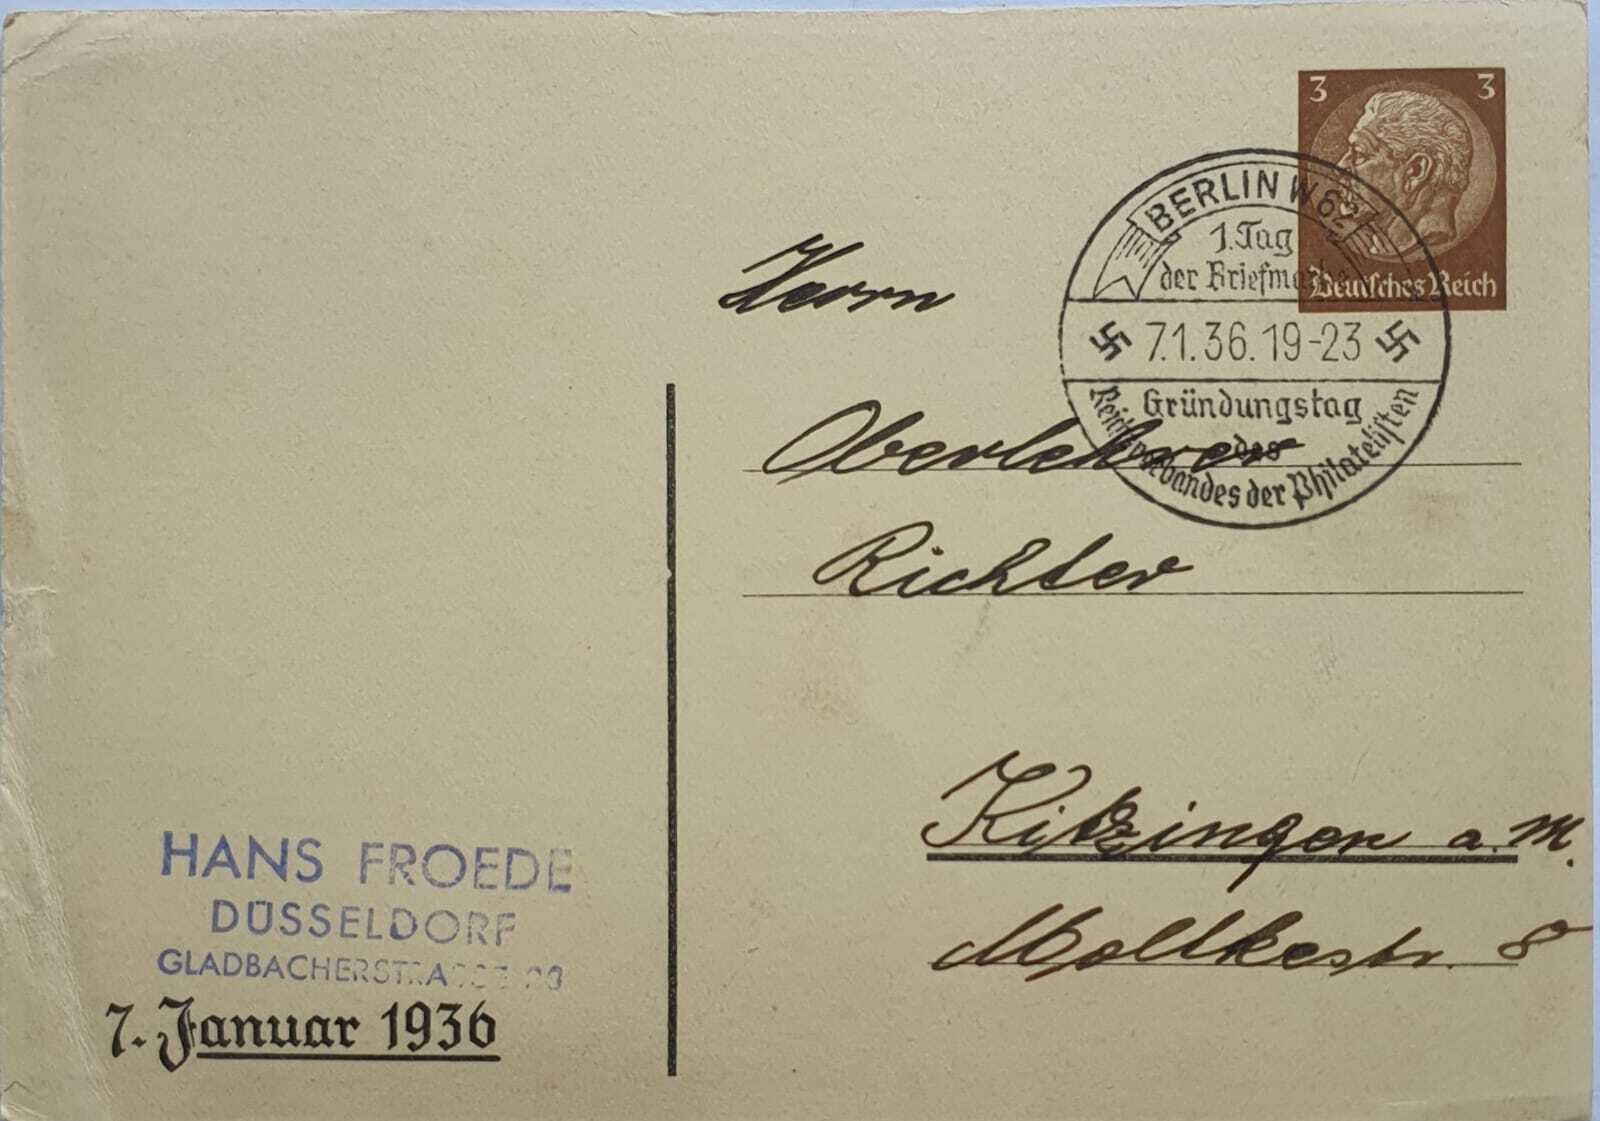 3 3
Deutsches Reich
BERLIN W 62
1. Tag
der Briefmarke
7.1.36.19-23
Gründungstag
des
Reichsverbandes der Philatelisten
Herrn
Oberlehrer
Richter
Kitzingen a. M.
Moltkestr. 8
HANS FROEDE
DÜSSELDORF
GLADBACHERSTRASSE
7. Januar 1936